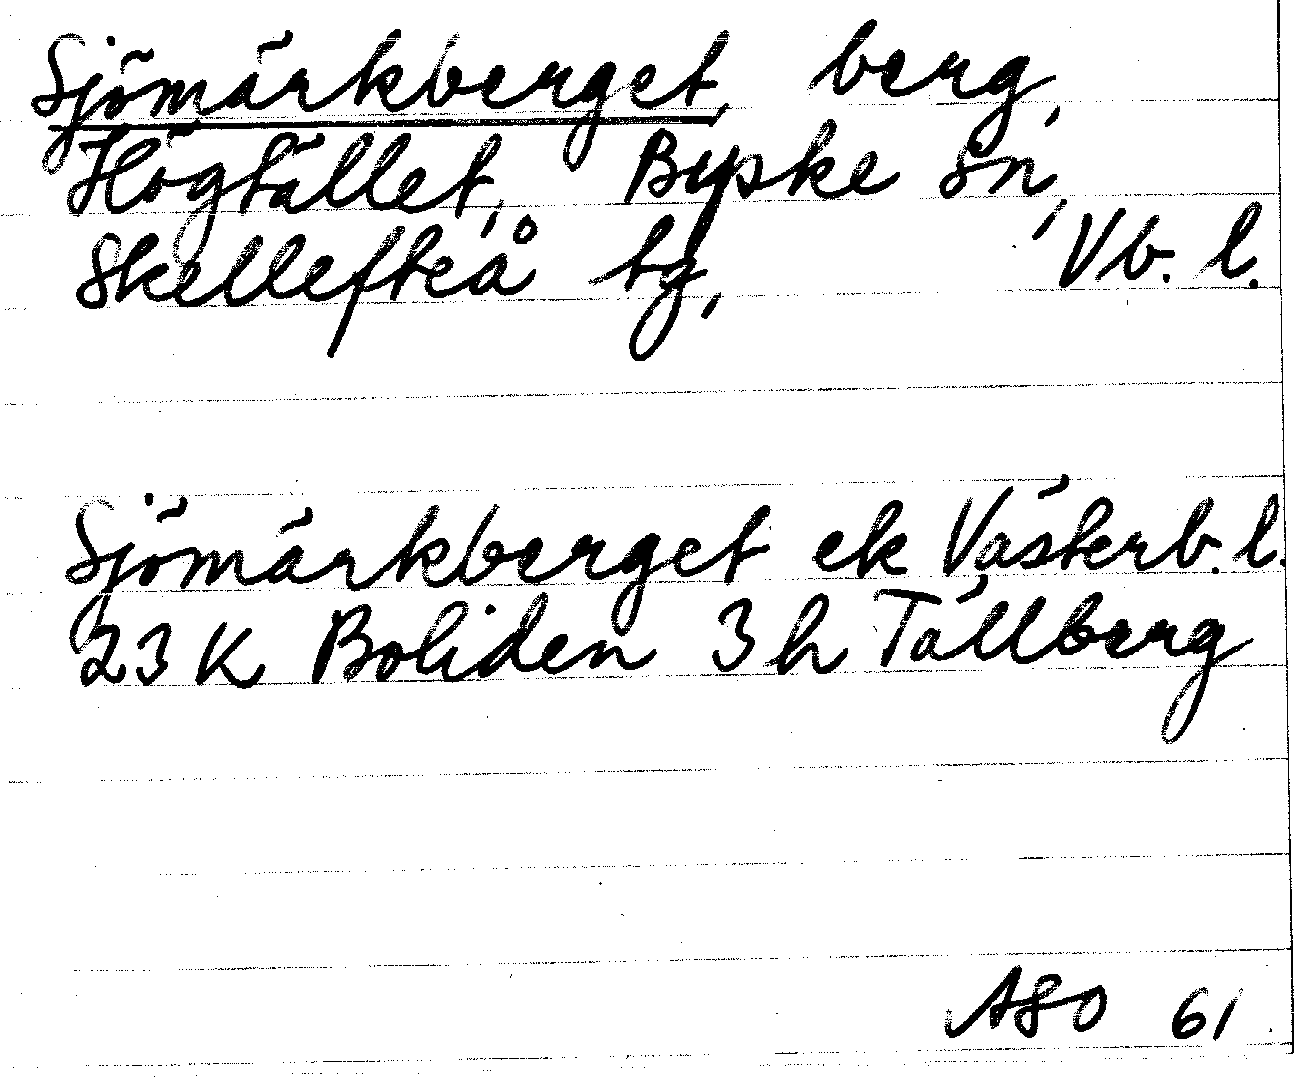 Sjömärkberget, berg,
Högfället, Byske sn,
Skellefteå tg, Vb. l.
Sjömärkberget ek Västerb. l.
23 K Boliden 3 h Tällberg
ASO 61